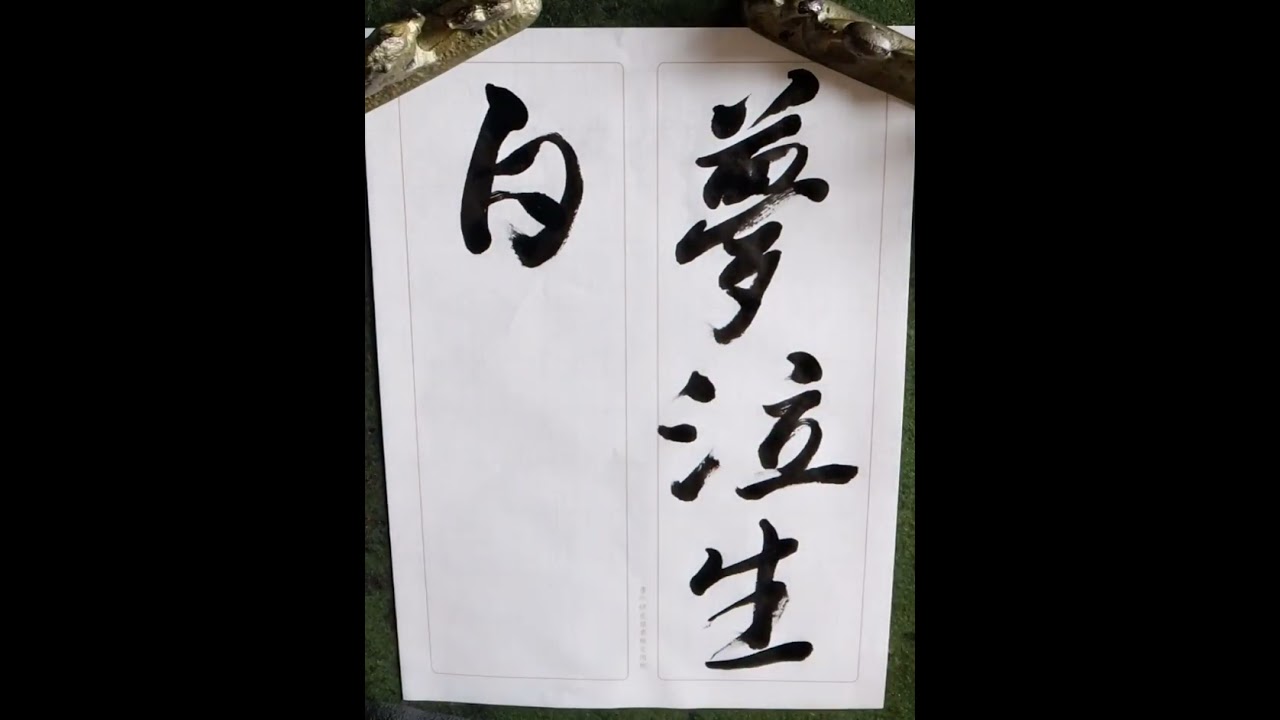 夢泣生
白